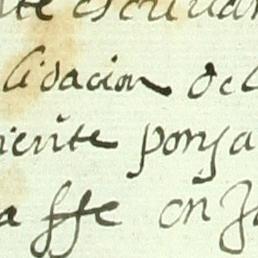 te escriuan
lidacion del
niente ponga
a ffe en Ja